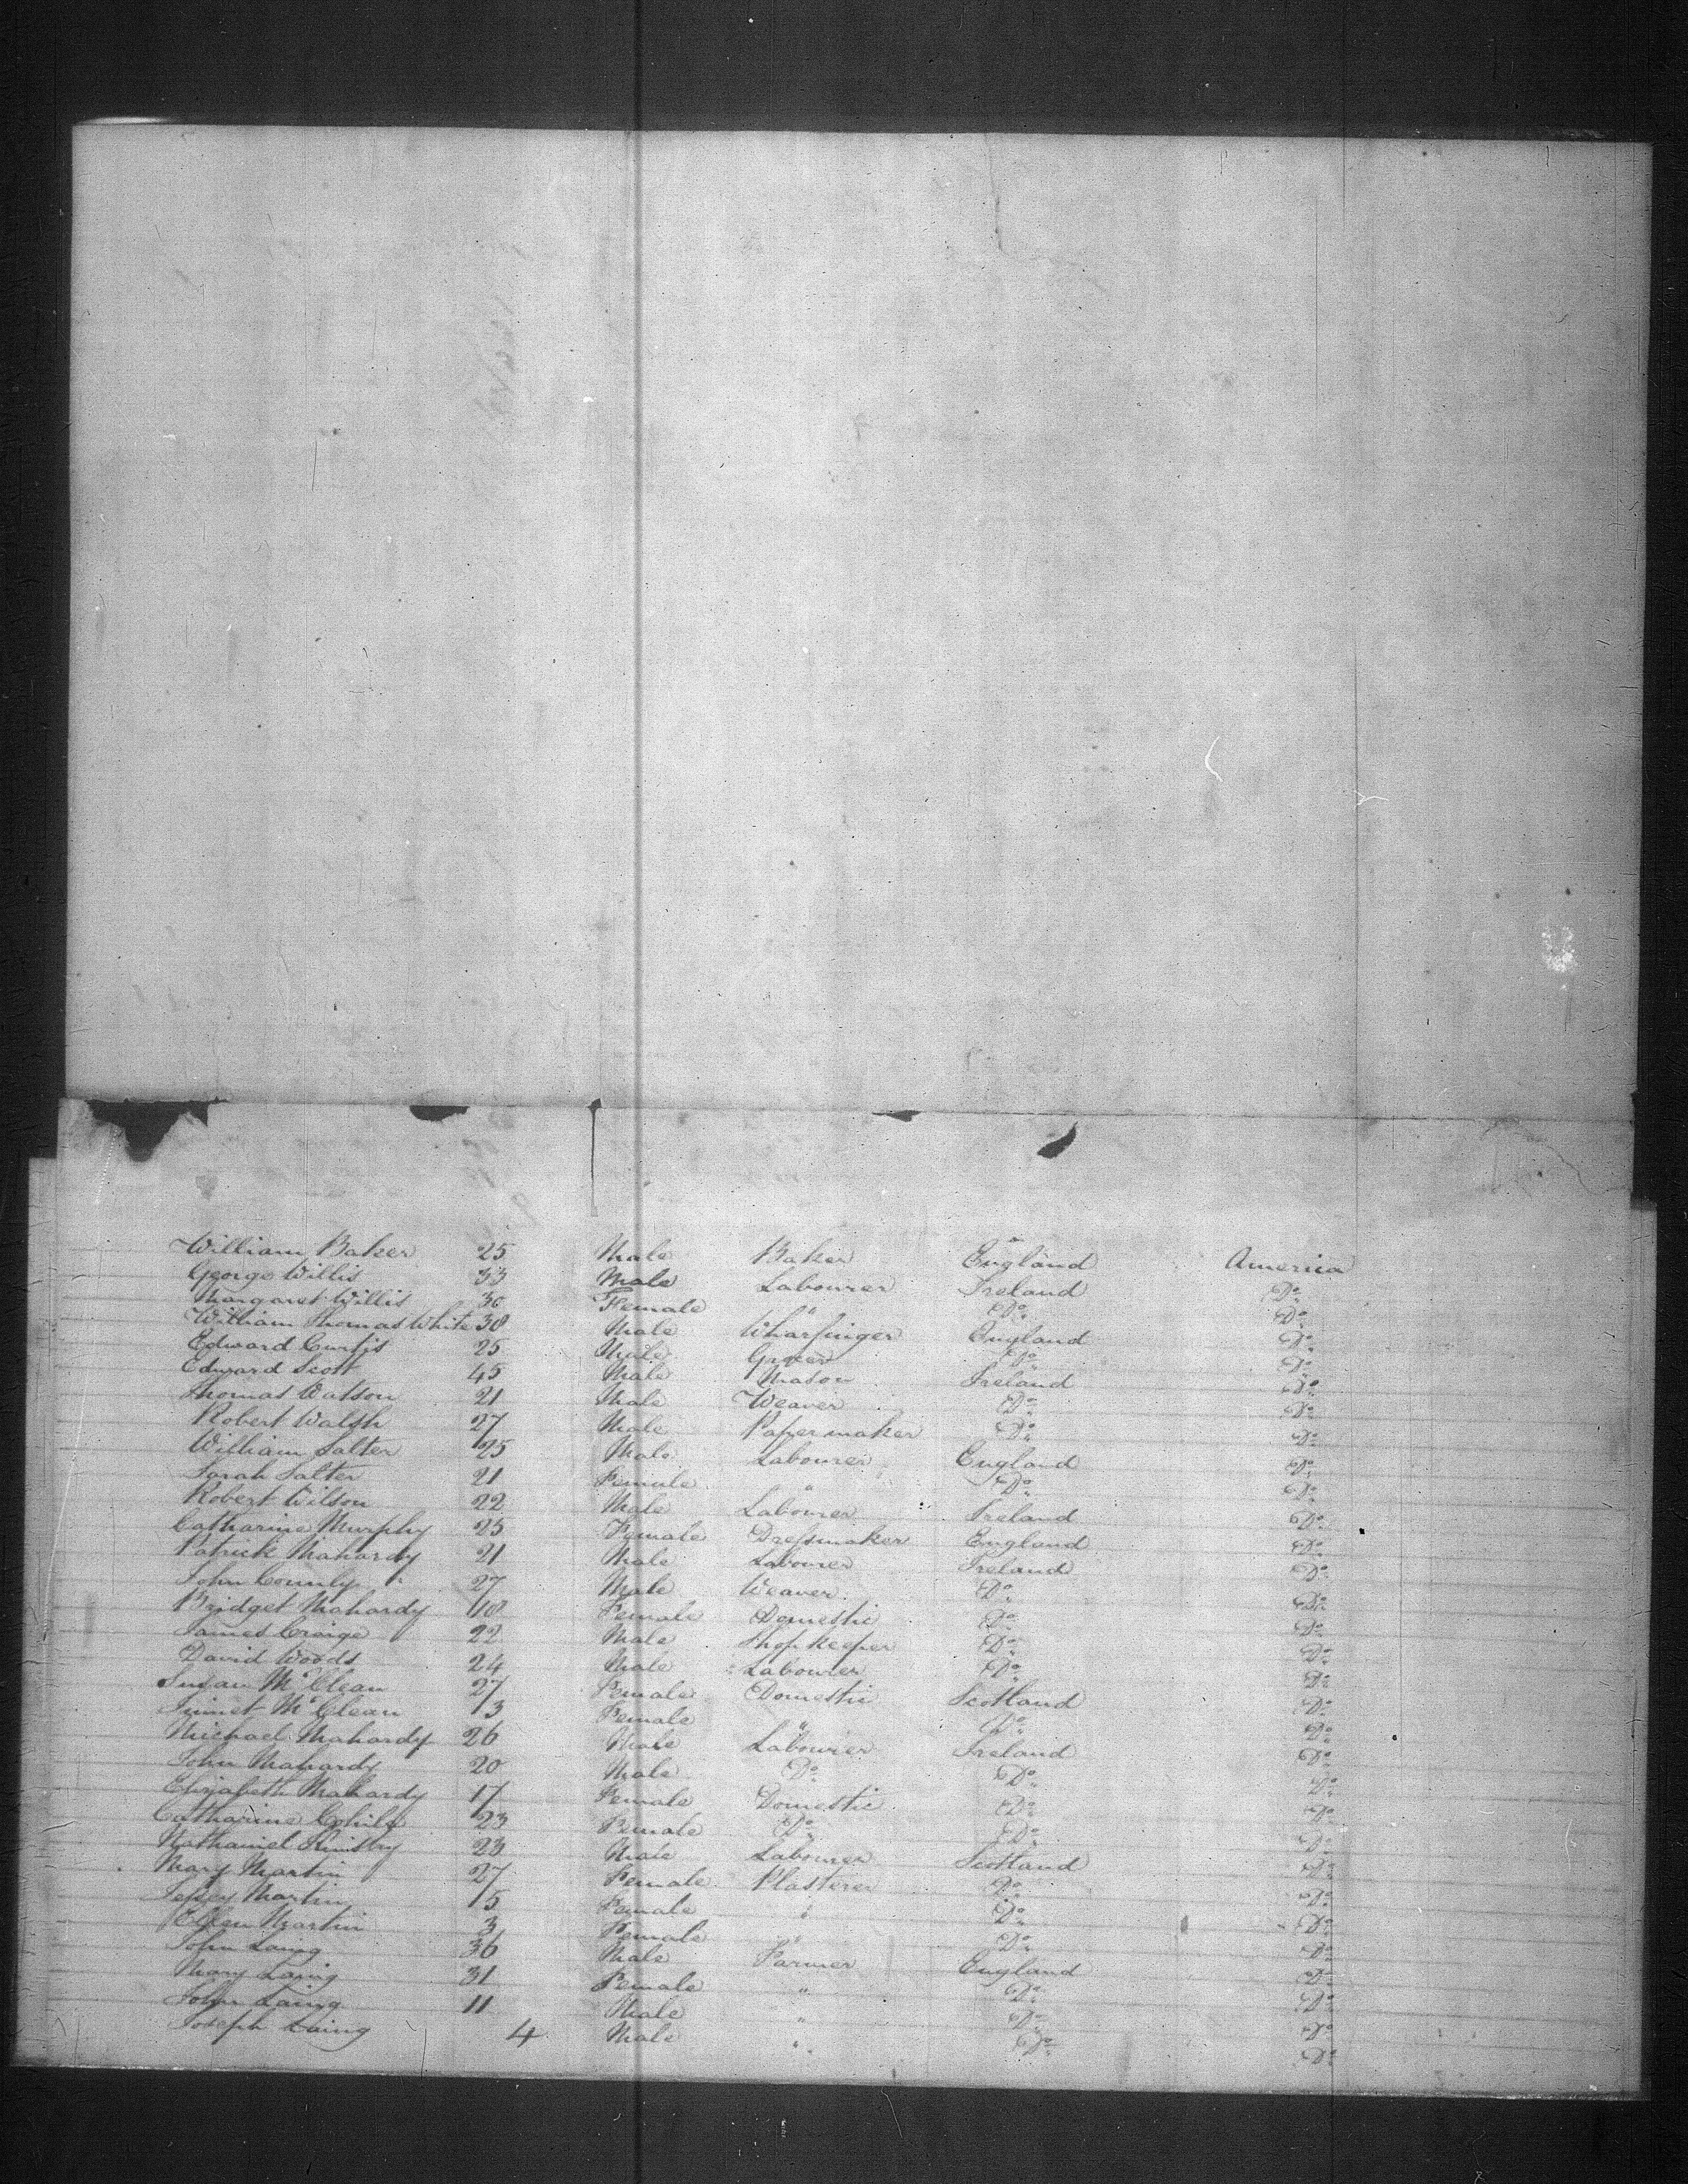 William Baker 25 Male Baker England America
George Willis 33 Male Labourer Ireland Do
Margaret Willis 30 Female " Do Do
William Thomas White 38 Male Wharfinger England Do
Edward Curtis 25 Male Grocer Do Do
Edward Scott 45 Male Mason Ireland Do
Thomas Watson 21 Male Weaver Do Do
Robert Walsh 27 Male Papermaker Do Do
William Salter 25 Male Labourer England Do
Sarah Salter 21 Female " Do Do
Robert Wilson 22 Male Labourer Ireland Do
Catharine Murphy 25 Female Dressmaker England Do
Patrick Mahardy 21 Male Labourer Ireland Do
John 27 Male Weaver Do Do
Bridget Mahardy 18 Female Domestic Do Do
James Craige 22 Male Shopkeeper Do Do
David Woods 24 Male Labourer Do Do
Susan McClean 27 Female Domestic Scotland Do
McClean 13 Female " Do Do
Michael Mahardy 26 Male Labourer Ireland Do
John Mahardy 20 Male Do Do Do
Elizabeth Mahardy 17 Female Domestic Do Do
Catharine 23 Female Do Do Do
Nathaniel 23 Male Labourer Scotland Do
Mary Martin 27 Female Plasterer Do Do
Jessey Martin 5 Female " Do Do
Ellen Martin 3 Female " Do Do
John Laing 36 Male Farmer England Do
Mary Laing 31 Female " Do Do
John Laing 11 Male " Do Do
Joseph Laing 4 Male " Do Do